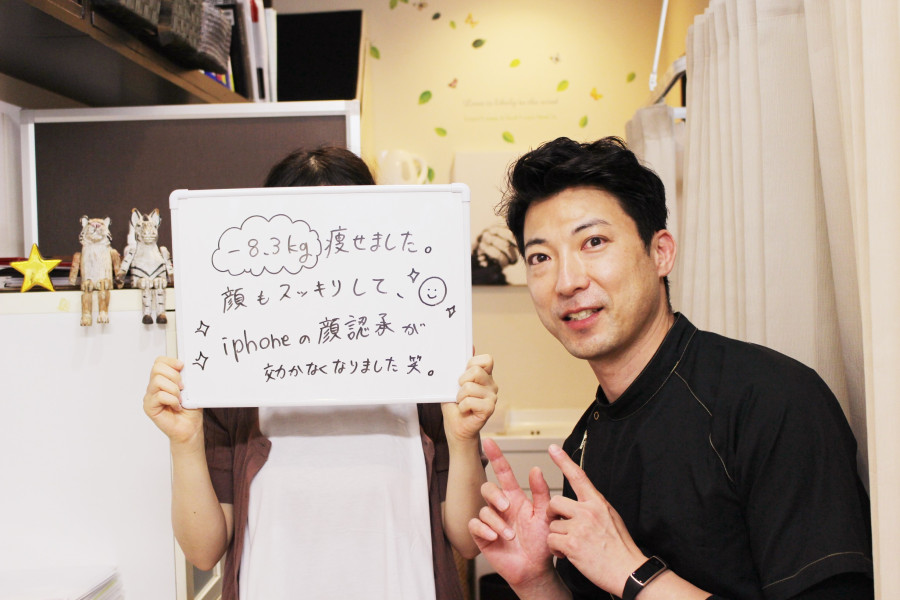 -8.3kg 痩せました。
顔もスッキリして、
iphoneの顔認承が
効かなくなりました笑。